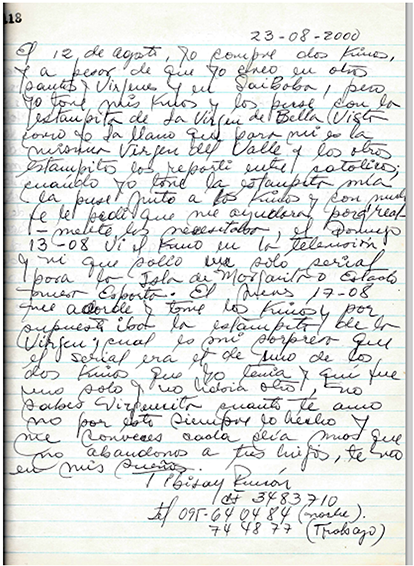 118
23-08-2000
El 12 de agosto, yo compre dos Kinos,
y a pesar de que yo creo en otros
santos, Virgenes y en Saibaba, pero
yo tomé mis Kinos y los puse con la
estampita de La Virgen de Bella Vista
como yo la llamo que para mi es la
misma Virgen del Valle y los otros
estampitas los reparti entre católicos,
cuando yo tomé la estampita mia
la puse junto a los Kinos y con mucha
fe le pedi que me ayudara, por real
- mente los necesitaba, el Domingo
13-08 Vi el Kino en la television
y vi que salio un solo serial
para la Isla de Margarita o Estado
nueva Esparta. El jueves 17-08
me acorde y tome los Kinos y por
supuesto iba la estampita de la
Virgen, cual es mi sorpresa que
el serial era el de uno de los
dos Kinos que yo tenia y aquí fue
uno solo y no habia otro,
sabes Virgencita cuanto te amo
no por esto siempre lo hecho y
me convences cada dia mas que
no abandonas a tus hijos, te veo
en mis sueños.
Tibisay
3483710
tel 095-640484 (noche).
744877 (Trabajo)